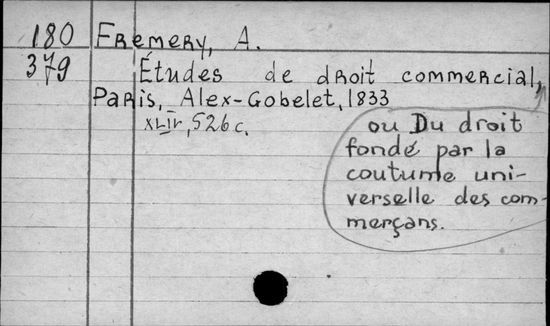 180 Fremery, A.
379 Études de droit commercial,
Paris, Alex-Gobelet, 1833
XLIV, 526 c.
ou Du droit
fondé par la
coutume uni-
verselle des com-
merçans.